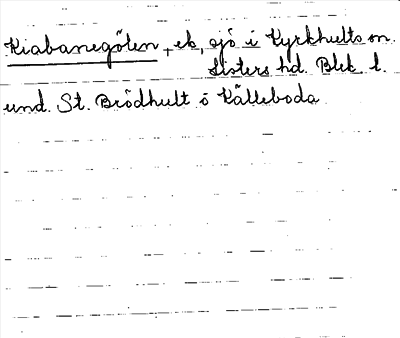 Kiabanegölen, ek, sjö i Kyrkhults sn.
Listers hd. Blek. l.
und. St. Brödhult o Källeboda